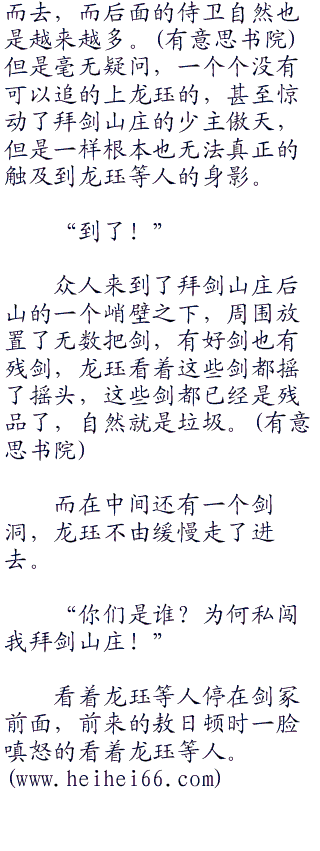 而去，而后面的侍卫自然也
是越来越多。(有意思书院)
但是毫无疑问，一个个没有
可以追的上龙珏的，甚至惊
动了拜剑山庄的少主傲天，
但是一样根本也无法真正的
触及到龙珏等人的身影。
“到了！”
众人来到了拜剑山庄后
山的一个峭壁之下，周围放
置了无数把剑，有好剑也有
残剑，龙珏看着这些剑都摇
了摇头，这些剑都已经是残
品了，自然就是垃圾。(有意
思书院)
而在中间还有一个剑
洞，龙珏不由缓慢走了进
去。
“你们是谁？为何私闯
我拜剑山庄！”
看着龙珏等人停在剑冢
前面，前来的敖日顿时一脸
嗔怒的看着龙珏等人。
(www.heihei66.com)